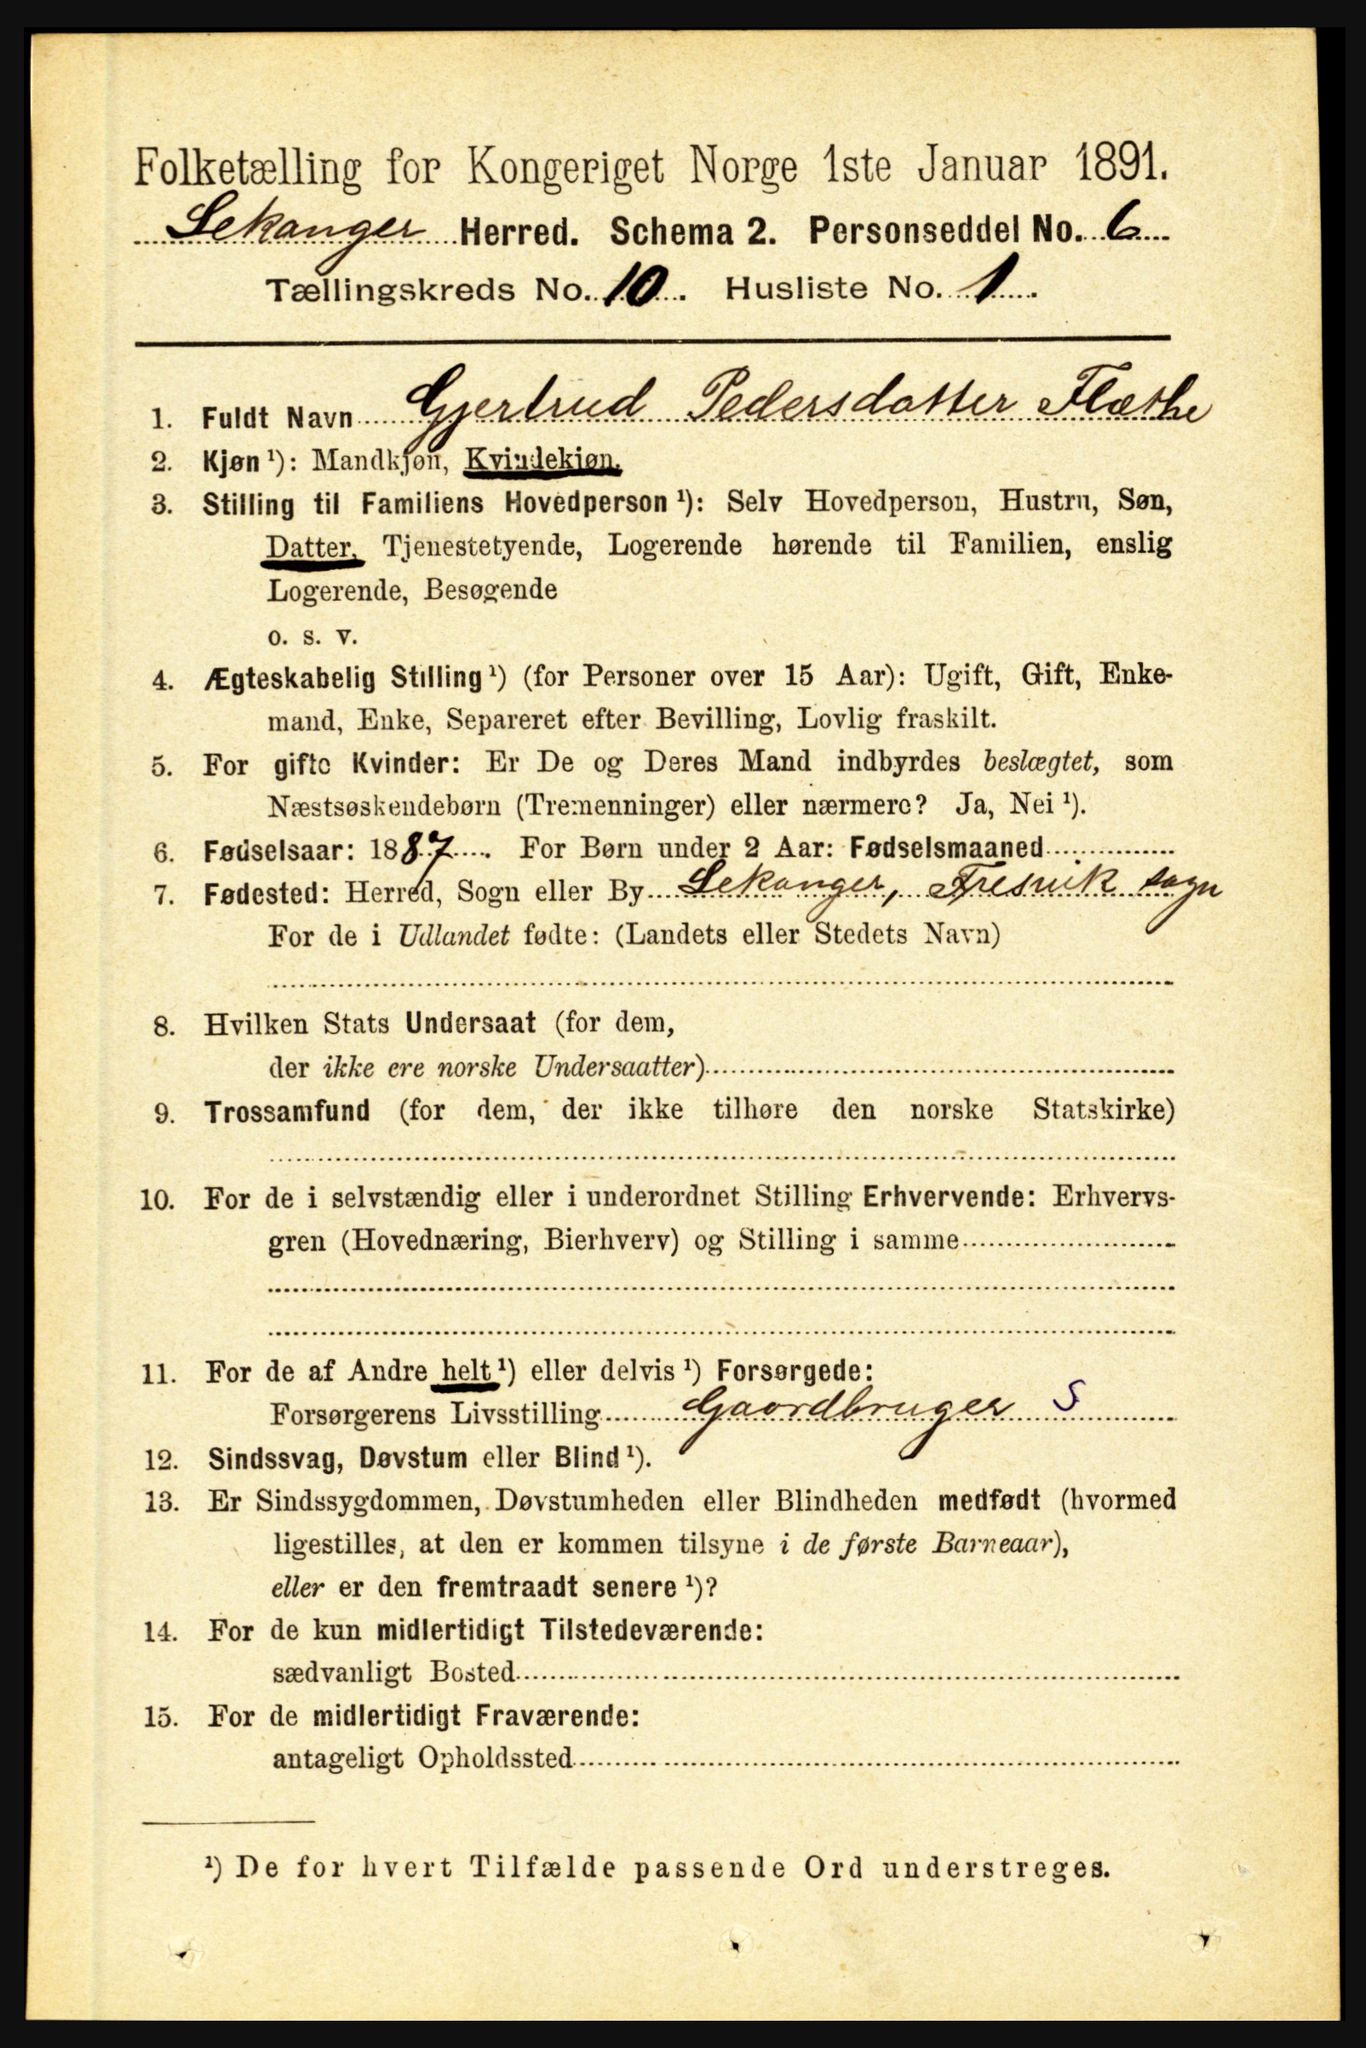 Folketælling for Kongeriget Norge 1ste Januar 1891.
Lekanger Herred. Schema 2. Personseddel No. 6
Tællingskreds No. 10. Husliste No. 1.
1. Fuldt Navn Gjertrud Pedersdatter Flæthe
2. Kjøn ¹): Mandkjøn, Kvindekjøn.
3. Stilling til Familiens Hovedperson ¹): Selv Hovedperson, Hustru, Søn,
Datter, Tjenestetyende, Logerende hørende til Familien, enslig
Logerende, Besøgende
o. s. v.
4. Ægteskabelig Stilling ¹) (for Personer over 15 Aar): Ugift, Gift, Enke-
mand, Enke, Separeret efter Bevilling, Lovlig fraskilt.
5. For gifte Kvinder: Er De og Deres Mand indbyrdes beslægtet, som
Næstsøskendebørn (Tremenninger) eller nærmere? Ja, Nei ¹).
6. Fødselsaar: 1887. For Børn under 2 Aar: Fødselsmaaned
7. Fødested: Herred, Sogn eller By Lekanger, Fresvik sogn
For de i Udlandet fødte: (Landets eller Stedets Navn)
8. Hvilken Stats Undersaat (for dem,
der ikke ere norske Undersaatter)
9. Trossamfund (for dem, der ikke tilhøre den norske Statskirke)
10. For de i selvstændig eller i underordnet Stilling Erhvervende: Erhvervs-
gren (Hovednæring, Bierhverv) og Stilling i samme
11. For de af Andre helt ¹) eller delvis ¹) Forsørgede:
Forsørgerens Livsstilling Gaardbruger S
12. Sindssvag, Døvstum eller Blind ¹).
13. Er Sindssygdommen, Døvstumheden eller Blindheden medfødt (hvormed
ligestilles, at den er kommen tilsyne i de første Barneaar),
eller er den fremtraadt senere ¹)?
14. For de kun midlertidigt Tilstedeværende:
sædvanligt Bosted
15. For de midlertidigt Fraværende:
antageligt Opholdssted
¹) De for hvert Tilfælde passende Ord understreges.